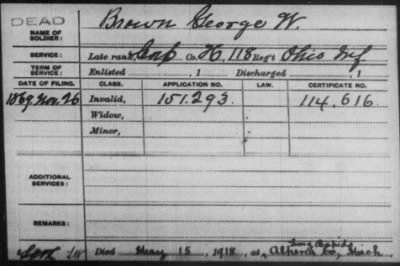 DEAD
NAME OF SOLDIER: Brown George W.
SERVICE: Late rank, Co. H, 118 Reg't Ohio Inf
TERM OF SERVICE: Enlisted , 1 Discharged , 1
DATE OF FILING. CLASS. APPLICATION NO. LAW. CERTIFICATE NO.
1869 Nov. 26 Invalid, 151.293. 114,616.
Widow,
Minor,
ADDITIONAL SERVICES:
REMARKS:
Long Rapids
Died May 15, 1918, at Alpena Co, Mich